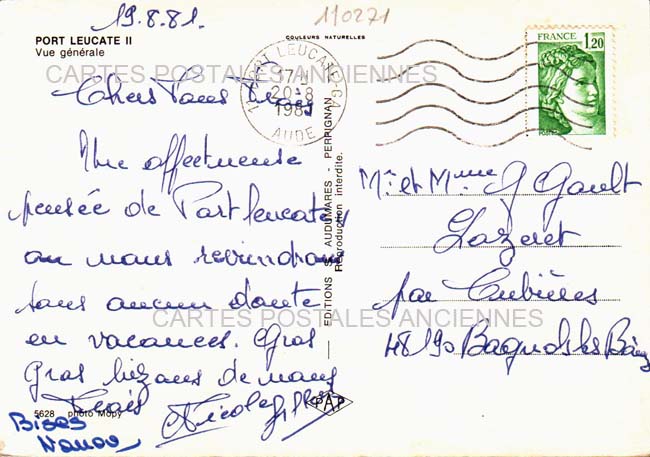 19.8.81.
110271
PORT LEUCATE II
Vue générale
COULEURS NATURELLES
FRANCE
1,20
PORT LEUCATE
17H
20-8
198
AUDE
CARTES POSTALES ANCIENNES
Chers Tous Trois
Une affectueuse
pensée de Port leucate
ou nous reviendrons
sans aucun doute
en vacances. Gros
Gros bizous de nous
Trois
Nicole
Bises
Mr et Mme G Gault
Lozeret
par Cubières
48190 Bagnols les Bains
EDITIONS S. AUDUMARES - PERPIGNAN
Reproduction interdite.
CARTES POSTALES ANCIENNES
5628 photo Mopy
AP